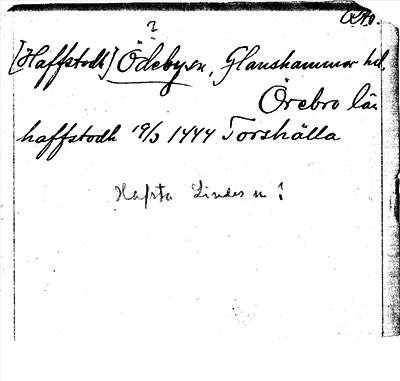 ?
[Haffstodh] Ödeby sn, Glanshammar hd,
Örebro län
haffstodh 19/3 1444 Torshälla
Hafsta Lindes sn ?